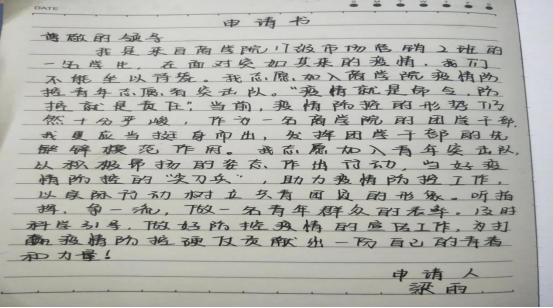 DATE
申请书
尊敬的领导
我是来自商学院17级市场营销2班的
一名学生，在面对突如其来的疫情，我们
不能坐以待毙。我志愿加入商学院疫情防
控青年志愿者突击队。"疫情就是命令，防
控就是责任"，当前，疫情防控的形势仍
然十分严峻，作为一名商学院的团学干部，
我更应当挺身而出，发挥团学干部的先
锋模范作用。我志愿加入青年突击队，
以积极昂扬的姿态，作出行动，当好疫
情防控的"尖刀兵"，助力疫情防控工作，
以实际行动树立共青团员的形象。听指
挥，争一流，做一名青年群众的表率。及时
科学引导，做好防控疫情的宣传工作，为打
赢疫情防控硬仗贡献出一份自己的青春
和力量！
申请人
梁雨